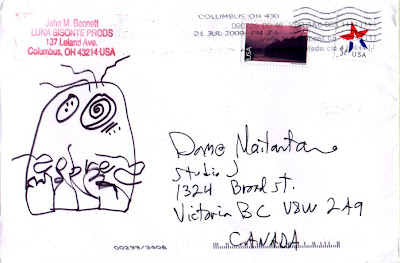 John M. Bennett
LUNA BISONTE PRODS
137 Leland Ave.
Columbus, OH 43214 USA
COLUMBUS OH 430
21 JUL 2009 PM
USA
USA
Studio J
1324 Broad st.
Victoria BC V8W 2A9
CANADA
00299/3408